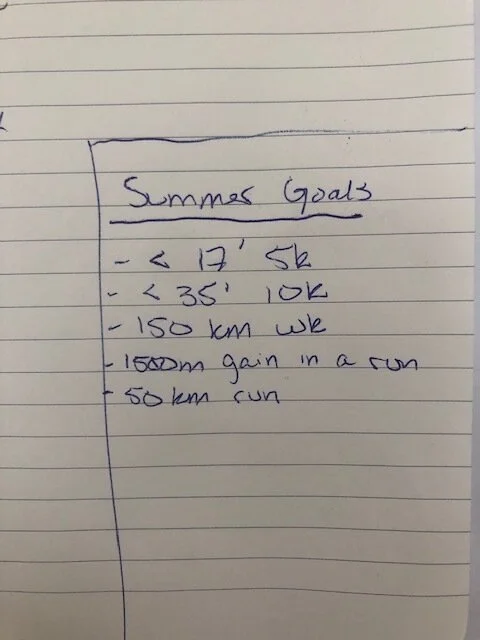 Summer Goals
- < 17' 5k
- < 35' 10k
- 150 km wk
- 1500m gain in a run
- 50 km run